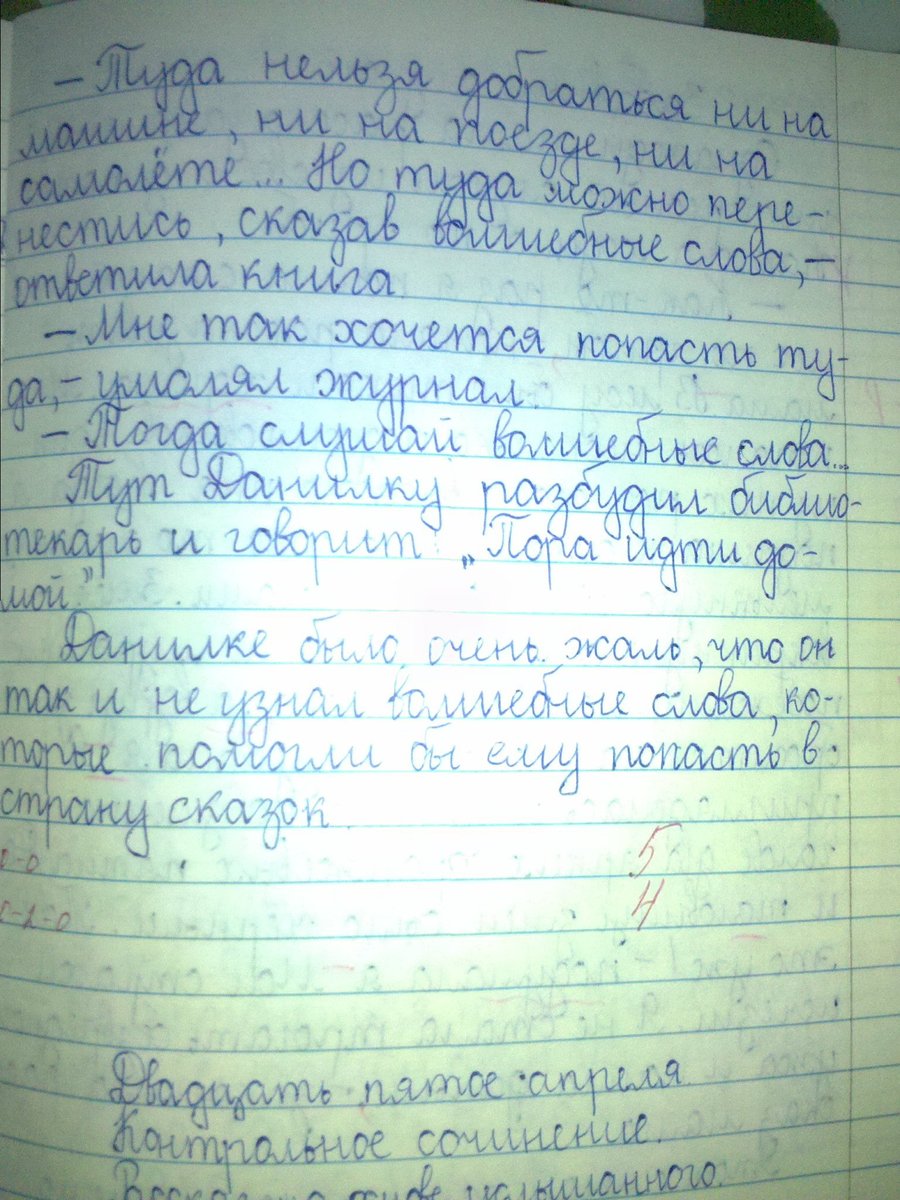 – Туда нельзя добраться ни на
машине, ни на поезде, ни на
самолёте... Но туда можно пере-
нестись, сказав волшебные слова, –
ответила книга.
– Мне так хочется попасть ту-
да, – умолял журнал.
– Тогда слушай волшебные слова...
Тут Данилку разбудил библио-
текарь и говорит: „Пора идти до-
мой."
Данилке было очень жаль, что он
так и не узнал волшебные слова, ко-
торые помогли бы ему попасть в
страну сказок.
5
4
Двадцать пятое апреля
Контрольное сочинение.
услышанного.